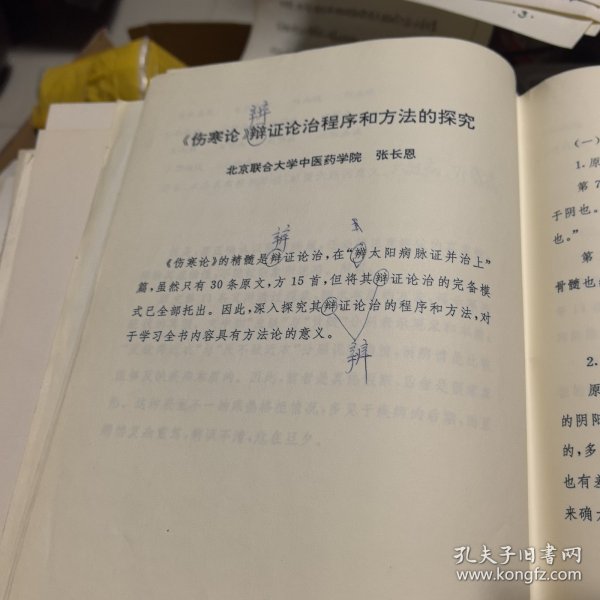 ·3·
辨
《伤寒论》辩证论治程序和方法的探究
北京联合大学中医药学院 张长恩
辨
《伤寒论》的精髓是辩证论治,在“辨太阳病脉证并治上”
篇,虽然只有30条原文,方15首,但将其辩证论治的完备模
式已全部托出。因此,深入探究其辩证论治的程序和方法,对
于学习全书内容具有方法论的意义。
辨
(一)
1.原
第7
于阴也。
也。”
第
骨髓也
2.
原
的阴阳
的,多
也有差
来确力
孔夫子旧书网
www.kongfz.com